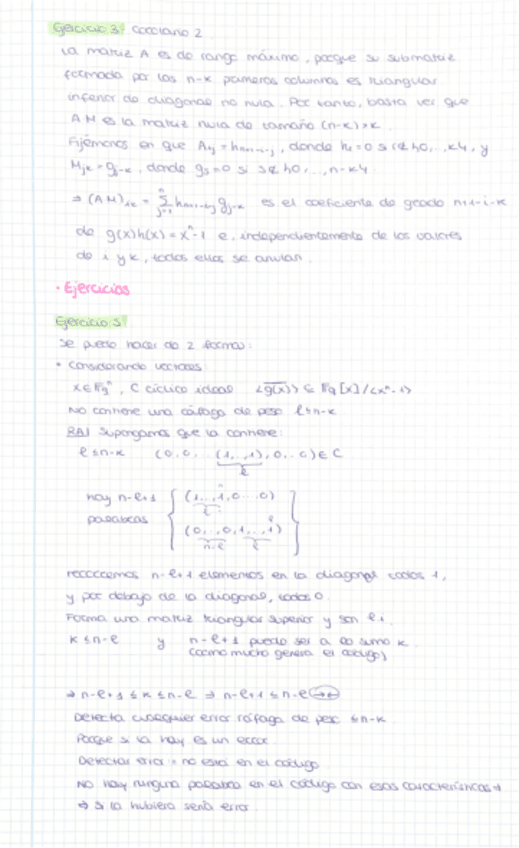 Ejercicio 3 corolario 2
La matriz A es de rango máximo, porque su submatriz
formada por las n-k primeras columnas es triangular
inferior de diagonal no nula. Por tanto, basta ver que
AM es la matriz nula de tamaño (n-k)×k.
Fijémonos en que Aij = hn+1-i-j, donde hl=0 si l∉{0,...,k}, y
Mjk = gj-k, donde gs=0 si s∉{0,...,n-k}.
⇒ (AM)ik = Σ j=1 n hn+1-i-j gj-k es el coeficiente de grado n+1-i-k
de g(x)h(x) = x^n-1 e, independientemente de los valores
de i y k, todos ellos se anulan.
· Ejercicios
Ejercicio 5
Se puede hacer de 2 formas:
• Considerando vectores:
x∈Fq^n, C cíclico ideal <g(x)> ⊆ Fq[x]/<x^n-1>
No contiene una ráfaga de peso l≤n-k
RA Supongamos que la contiene:
l≤n-k (0,0,...(1,..,1),0..0)∈C
l
hay n-l+1 { (1,..,1,0...0)
l
palabras
(0,..,0,1,..,1) }
n-l l
recorremos n-l+1 elementos en la diagonal todos 1,
y por debajo de la diagonal, todos 0.
Forma una matriz triangular superior y son l.i.
k≤n-l y n-l+1 puede ser a lo sumo k
(como mucho genera el código)
⇒ n-l+1 ≤ k ≤ n-l ⇒ n-l+1 ≤ n-l →←
Detecta cualquier error ráfaga de peso ≤n-k
Porque si la hay es un error
Detectar error = no está en el código
No hay ninguna palabra en el código con esas características ⇒
⇒ si la hubiera sería error.